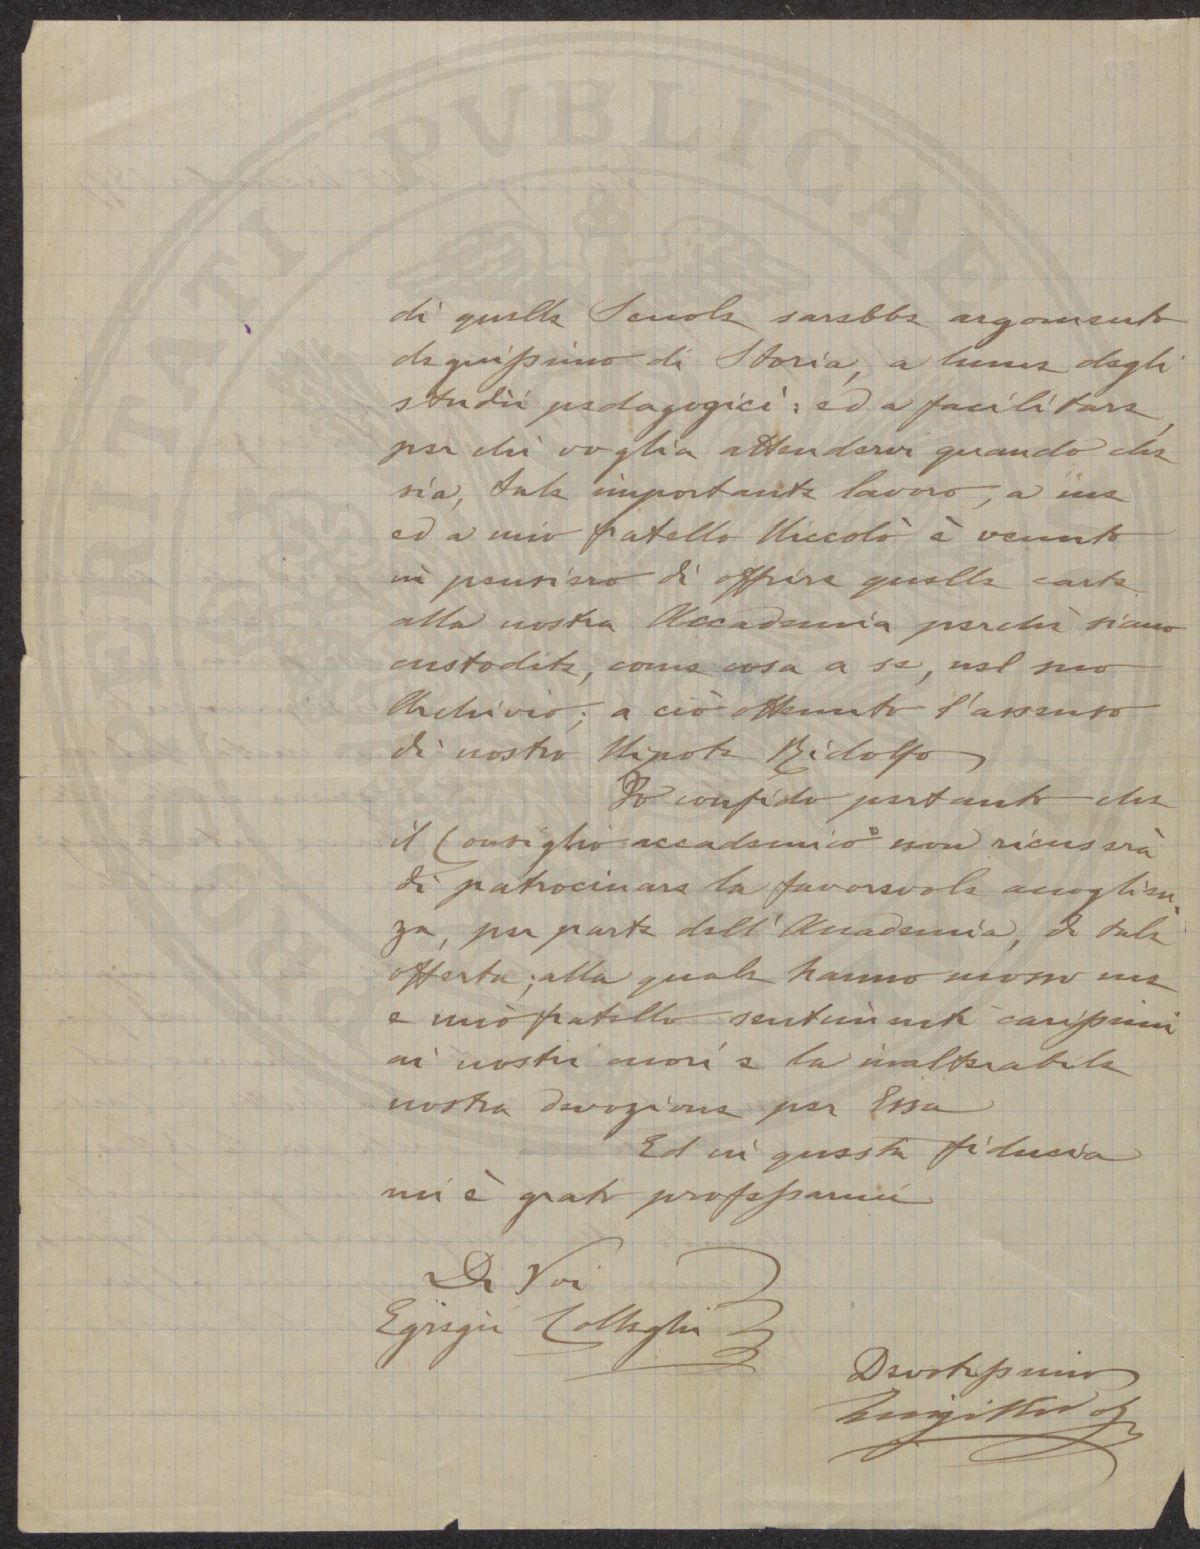 PROSPERITATI PUBLICAE
di quella Scuola sarebbe argomento
degnissimo di Storia, a lume degli
studii pedagogici: ed a facilitare,
per chi voglia attendervi quando che
sia, tale importante lavoro, a me
ed a mio fratello Niccolò è venuto
in pensiero di offrire quelle carte
alla nostra Accademia perchè siano
custodite, come cosa a se, nel suo
Archivio; a ciò ottenuto l'assenso
di nostro Nipote Ridolfo
Io confido pertanto che
il Consiglio accademico non ricuserà
di patrocinare la favorevole accoglien,
za, per parte dell'Accademia, di tale
offerta; alla quale hanno mosso me
e mio fratello sentimenti carissimi
ai nostri cuori e la inalterabile
nostra devozione per Essa
Ed in questa fiducia
mi è grato professarmi
Di Voi
Egregii Colleghi
Devotissimo
Luigi